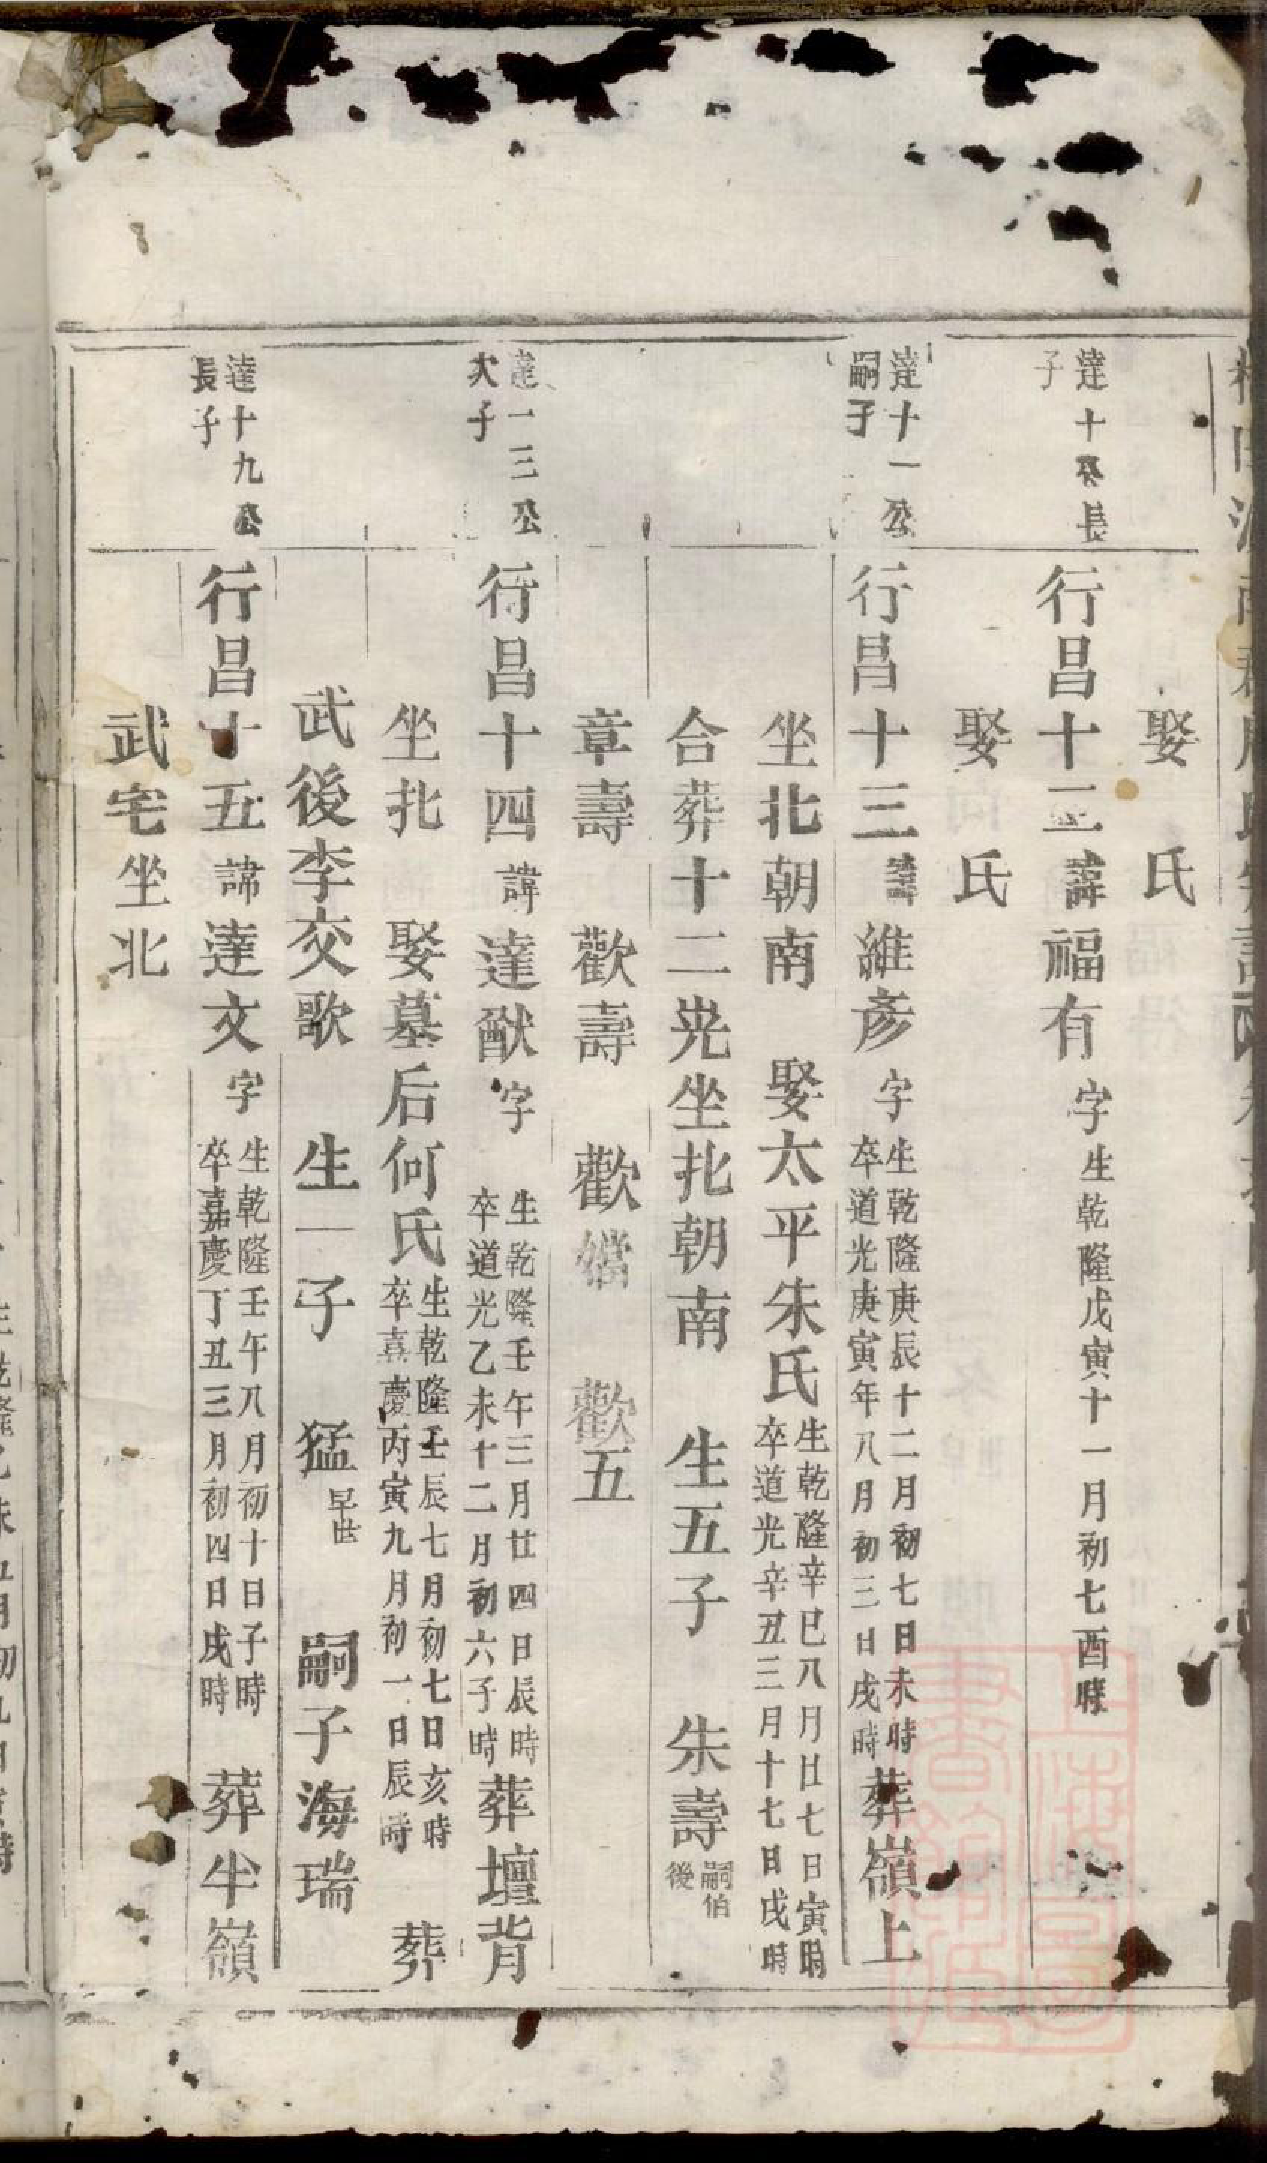 娶　氏
達十公長子
行昌十二諱福有字生乾隆戊寅十一月初七酉時
娶　氏
達十一公嗣子
行昌十三諱維彥字生乾隆庚辰十二月初七日未時卒道光庚寅年八月初三日戌時葬嶺上
坐北朝南　娶太平朱氏生乾隆辛巳八月廿七日寅時卒道光辛丑三月十七日戌時
合葬十二岇坐北朝南　生五子　朱壽嗣伯後
章壽　歡壽　歡　歡五
達一三公次子
行昌十四諱達猷字生乾隆壬午三月廿四日辰時卒道光乙未十二月初六子時葬壇背
坐北　娶墓后何氏生乾隆壬辰七月初七日亥時卒嘉慶丙寅九月初一日辰時　葬
武後李交歌　生一子　猛早世　嗣子海瑞
達十九公長子
行昌十五諱達文字生乾隆壬午八月初十日子時卒嘉慶丁丑三月初四日戌時　葬半嶺
武宅坐北